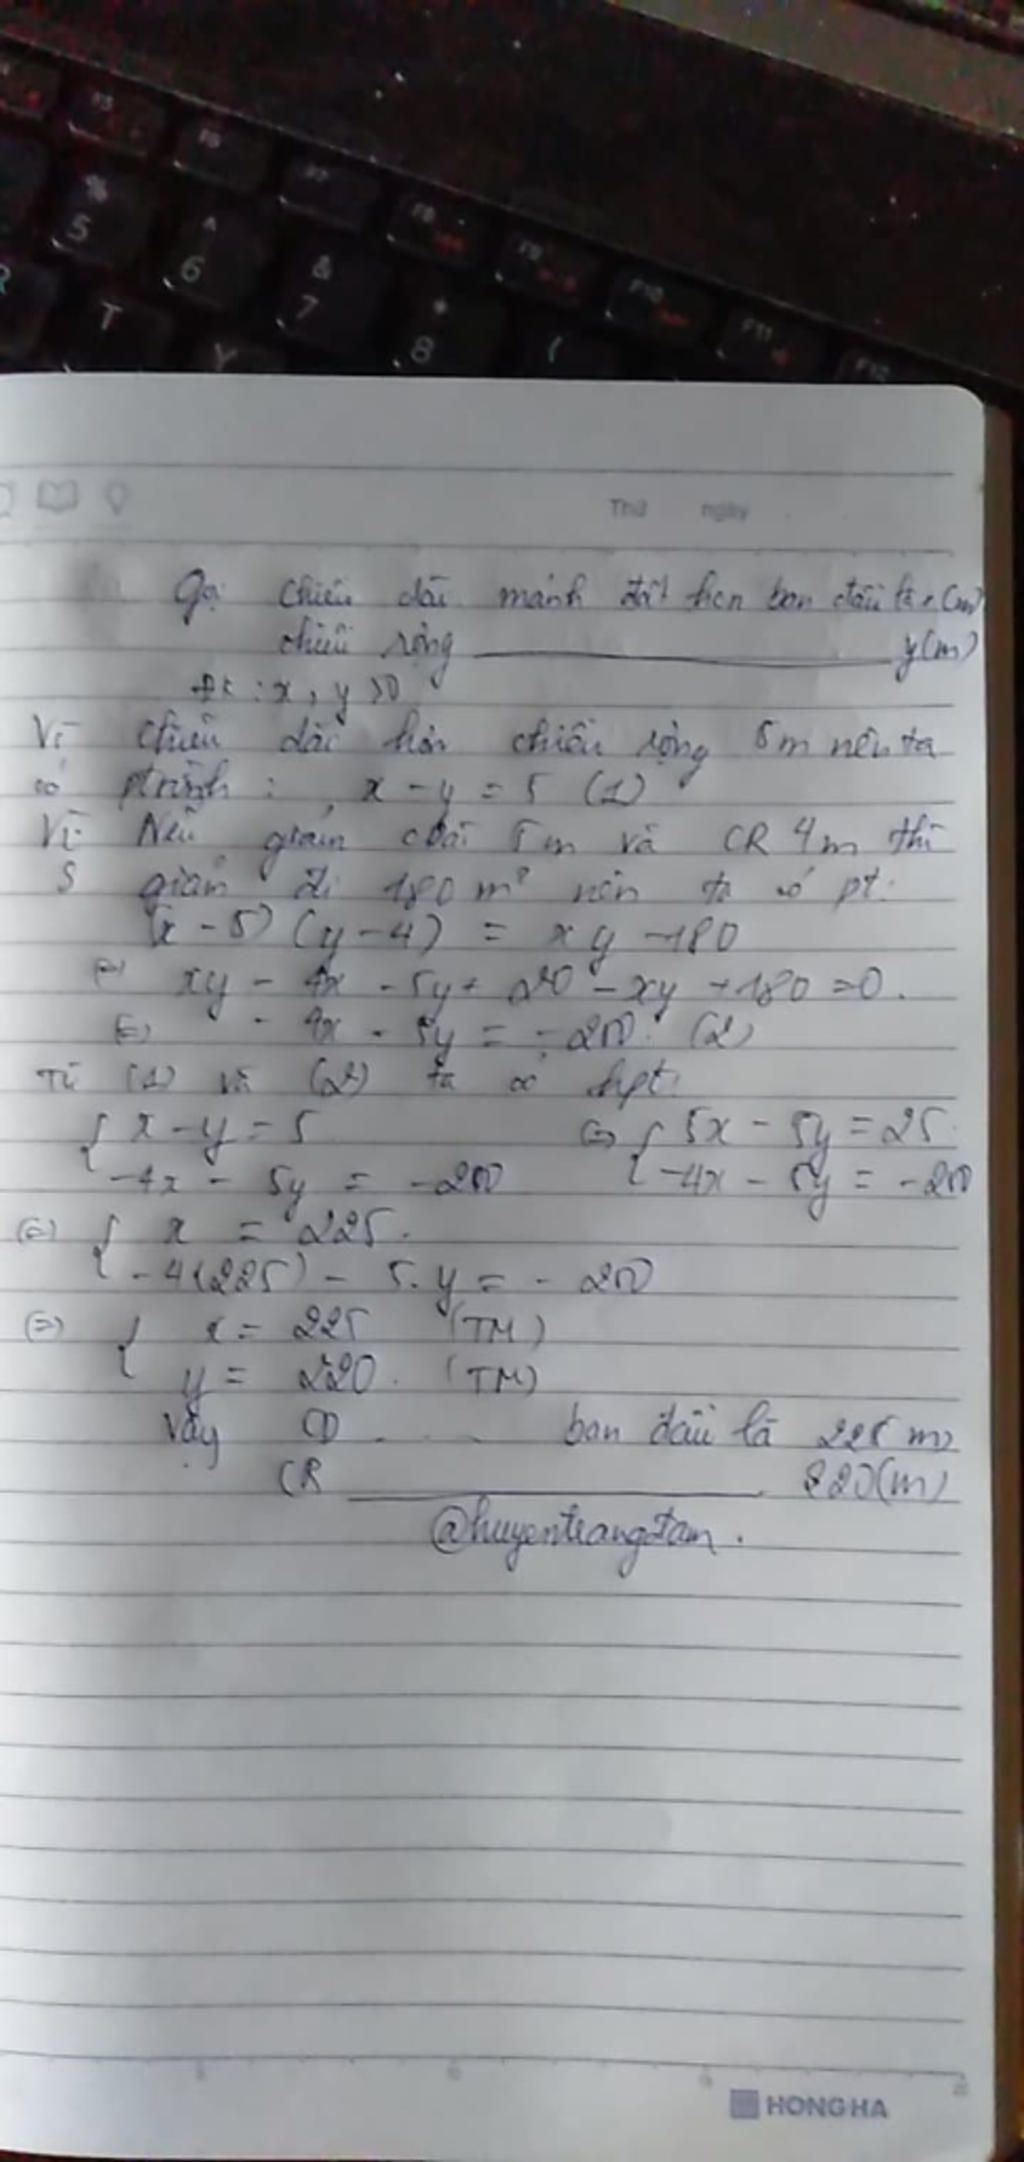 F5
F6
F7
F8
F9
F10
F11
F12
%
5
^
6
&
7
*
8
(
R
T
Y
Thứ ngày
Gọi chiều dài mảnh đất hcn ban đầu là x (m)
chiều rộng y(m)
đk : x, y >0
Vì chiều dài hơn chiều rộng 5m nên ta
có ptrình : x - y = 5 (1)
Vì Nếu giảm cdài 5m và CR 4m thì
S giảm đi 180 m² nên ta có pt:
(x - 5) (y - 4) = xy - 180
(=) xy - 4x - 5y + 20 - xy + 180 = 0.
(=) - 4x - 5y = - 200. (2)
Từ (1) và (2) ta có hpt:
{ x - y = 5 (=) { 5x - 5y = 25
-4x - 5y = -200 -4x - 5y = -200
(=) { x = 225.
-4(225) - 5.y = - 200
(=) { x = 225 (TM)
y = 220. (TM)
Vậy CD . . . ban đầu là 225(m)
CR 220(m)
@huyentrangtam.
HONG HA